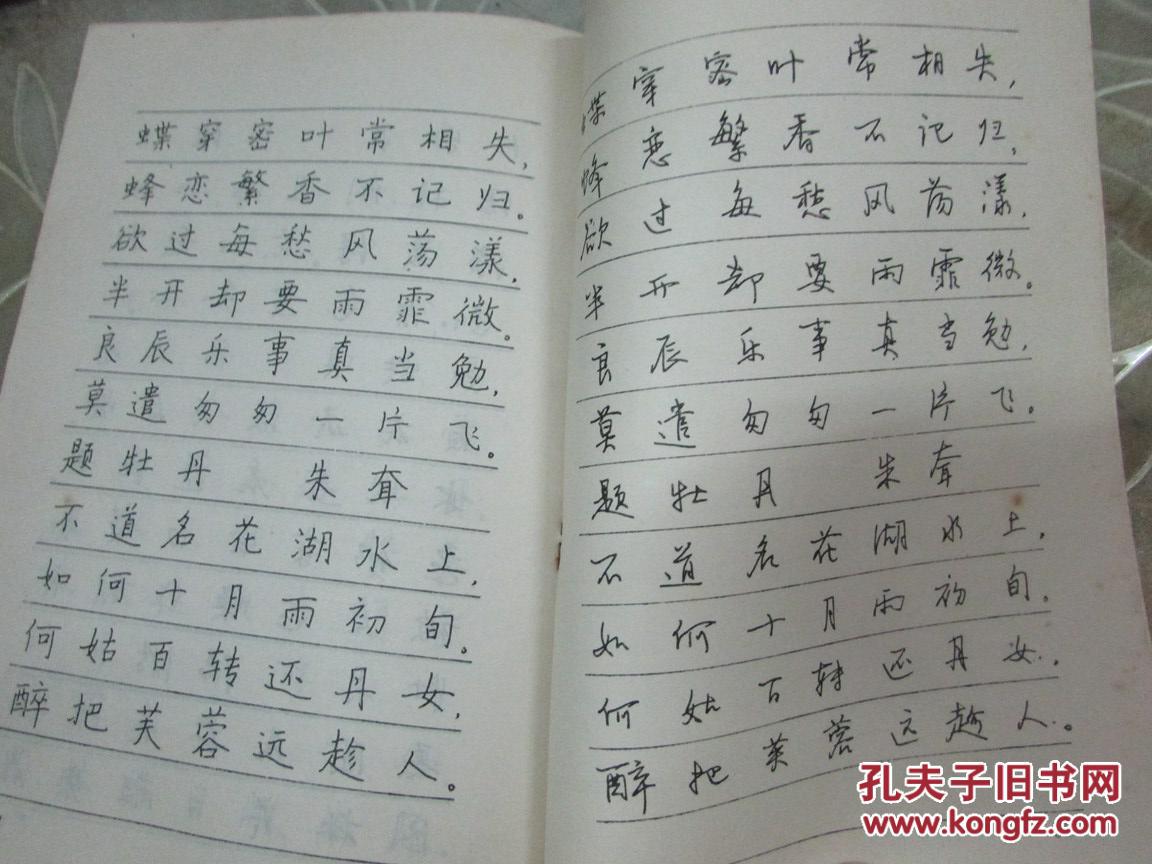 蝶穿密叶常相失，
蜂恋繁香不记归。
欲过每愁风荡漾，
半开却要雨霏微。
良辰乐事真当勉，
莫遣匆匆一片飞。
题牡丹 朱耷
不道名花湖水上，
如何十月雨初旬。
何姑百转还丹女，
醉把芙蓉远趁人。
蝶穿密叶常相失，
蜂恋繁香不记归，
欲过每愁风荡漾，
半开却要雨霏微。
良辰乐事真当勉，
莫遣匆匆一片飞。
题牡丹 朱耷
不道名花湖水上，
如何十月雨初旬。
何姑百转还丹女，
醉把芙蓉远趁人。
孔夫子旧书网
www.kongfz.com